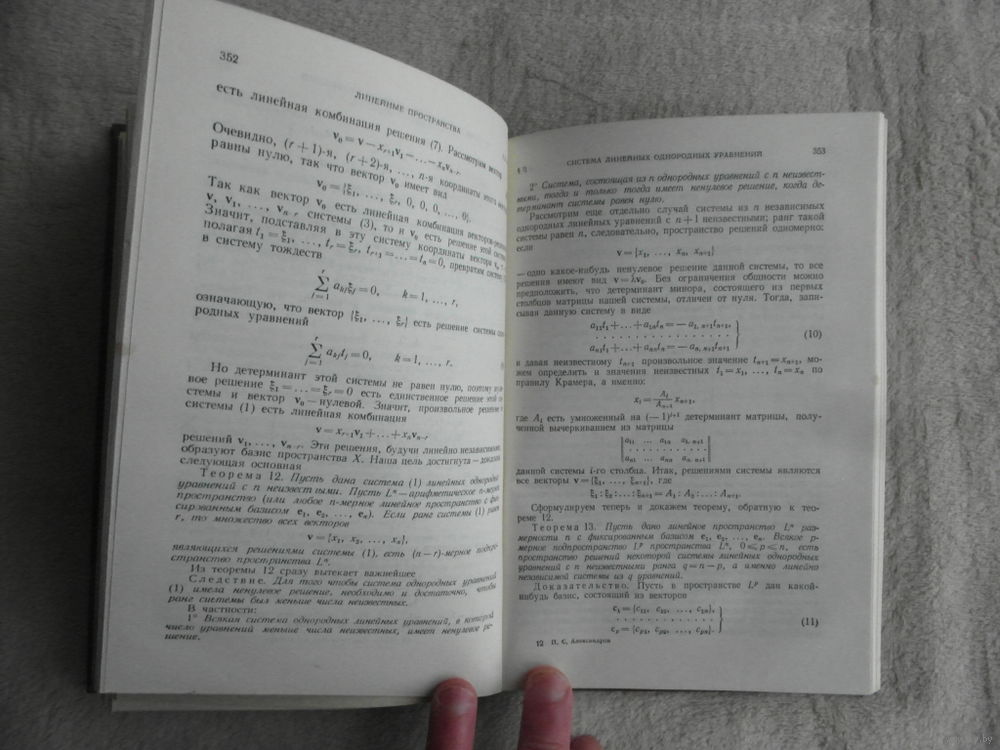 352
ЛИНЕЙНЫЕ ПРОСТРАНСТВА
есть линейная комбинация решения (7). Рассмотрим вектор
v₀ = v — xᵣ₊₁v₁ — ... — xₙvₙ₋ᵣ.
Очевидно, (r + 1)-я, (r + 2)-я, ..., n-я координаты этого
равны нулю, так что вектор v₀ имеет вид
v₀ = {ξ₁, ..., ξᵣ, 0, 0, 0, ..., 0}.
Так как вектор v₀ есть линейная комбинация
v, v₁, ..., vₙ₋ᵣ системы (3), то и v₀ есть решение этой
Значит, подставляя в эту систему координаты вектора v₀,
полагая t₁ = ξ₁, ..., tᵣ = ξᵣ, tᵣ₊₁ = ... = tₙ = 0, превратим
в систему тождеств
r
∑ aₖⱼξⱼ = 0, k = 1, ..., r,
j = 1
означающую, что вектор {ξ₁, ..., ξᵣ} есть решение системы
родных уравнений
r
∑ aₖⱼtⱼ = 0, k = 1, ..., r.
j = 1
Но детерминант этой системы не равен нулю, поэтому
вое решение ξ₁ = ... = ξᵣ = 0 есть единственное решение этой
стемы и вектор v₀ — нулевой. Значит, произвольное решение
системы (1) есть линейная комбинация
v = xᵣ₊₁v₁ + ... + xₙvₙ₋ᵣ
решений v₁, ..., vₙ₋ᵣ. Эти решения, будучи линейно независимыми,
образуют базис пространства X. Наша цель достигнута — доказана
следующая основная
Теорема 12. Пусть дана система (1) линейных однородных
уравнений с n неизвестными. Пусть Lⁿ — арифметическое n-мерное
пространство (или любое n-мерное линейное пространство с фик-
сированным базисом e₁, e₂, ..., eₙ). Если ранг системы (1) равен
r, то множество всех векторов
v = {x₁, x₂, ..., xₙ},
являющихся решениями системы (1), есть (n — r)-мерное подпро-
странство пространства Lⁿ.
Из теоремы 12 сразу вытекает важнейшее
Следствие. Для того чтобы система однородных уравнений
(1) имела ненулевое решение, необходимо и достаточно, чтобы
ранг системы был меньше числа неизвестных.
В частности:
1° Всякая система однородных линейных уравнений, в которой
число уравнений меньше числа неизвестных, имеет ненулевое ре-
шение.
СИСТЕМА ЛИНЕЙНЫХ ОДНОРОДНЫХ УРАВНЕНИЙ 353
2° Система, состоящая из n однородных уравнений с n неизвест-
ными, тогда и только тогда имеет ненулевое решение, когда де-
терминант системы равен нулю.
Рассмотрим еще отдельно случай системы из n независимых
однородных линейных уравнений с n + 1 неизвестными; ранг такой
системы равен n, следовательно, пространство решений одномерно:
если
v = {x₁, ..., xₙ, xₙ₊₁}
— одно какое-нибудь ненулевое решение данной системы, то все
решения имеют вид v = λv₀. Без ограничения общности можно
предположить, что детерминант минора, состоящего из первых
столбцов матрицы нашей системы, отличен от нуля. Тогда, запи-
сывая данную систему в виде
a₁₁t₁ + ... + a₁ₙtₙ = — a₁, ₙ₊₁tₙ₊₁,
. . . . . . . . . . . . . . . . (10)
aₙ₁t₁ + ... + aₙₙtₙ = — aₙ, ₙ₊₁tₙ₊₁
и давая неизвестному tₙ₊₁ произвольное значение tₙ₊₁ = xₙ₊₁, мо-
жем определить и значения неизвестных t₁ = x₁, ..., tₙ = xₙ по
правилу Крамера, а именно:
xᵢ = Aᵢ/Aₙ₊₁ xₙ₊₁,
где Aᵢ есть умноженный на (— 1)ⁱ⁺¹ детерминант матрицы, полу-
ченной вычеркиванием из матрицы
a₁₁ ... a₁ₙ a₁, ₙ₊₁
. . . . . . . . . . .
aₙ₁ ... aₙₙ aₙ, ₙ₊₁
данной системы i-го столбца. Итак, решениями системы являются
все векторы v = {ξ₁, ..., ξₙ₊₁}, где
ξ₁ : ξ₂ : ... : ξₙ₊₁ = A₁ : A₂ : ... : Aₙ₊₁.
Сформулируем теперь и докажем теорему, обратную к тео-
реме 12.
Теорема 13. Пусть дано линейное пространство Lⁿ раз-
мерности n с фиксированным базисом e₁, e₂, ..., eₙ. Всякое p-
мерное подпространство Lᵖ пространства Lⁿ, 0 ⩽ p ⩽ n, есть
пространство решений некоторой системы линейных однородных
уравнений с n неизвестными ранга q = n — p, а именно линейно
независимой системы из q уравнений.
Доказательство. Пусть в пространстве Lᵖ дан какой-
нибудь базис, состоящий из векторов
c₁ = {c₁₁, c₁₂, ..., c₁ₙ},
. . . . . . . . . . . . (11)
cₚ = {cₚ₁, cₚ₂, ..., cₚₙ}.
12 П. С. Александров